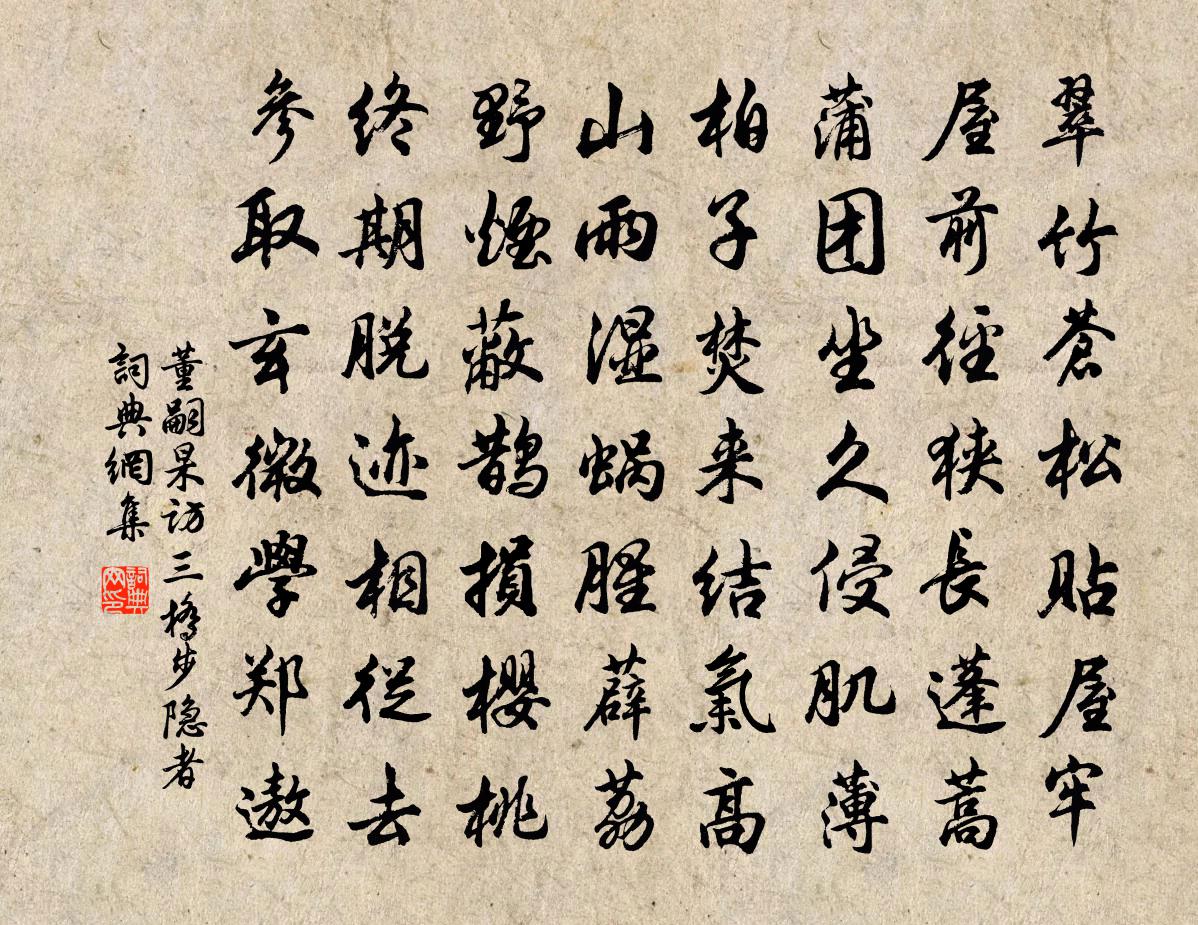 翠竹苍松贴屋牢
屋前径狭长蓬蒿
蒲团坐久侵肌薄
柏子焚来结氣高
山雨湿蜗腥薜荔
野烟蔽鹊损樱桃
终期脱迹相從去
参取玄微學郑遨
董嗣杲访三橋步隐者
詞典網集
詞典網印